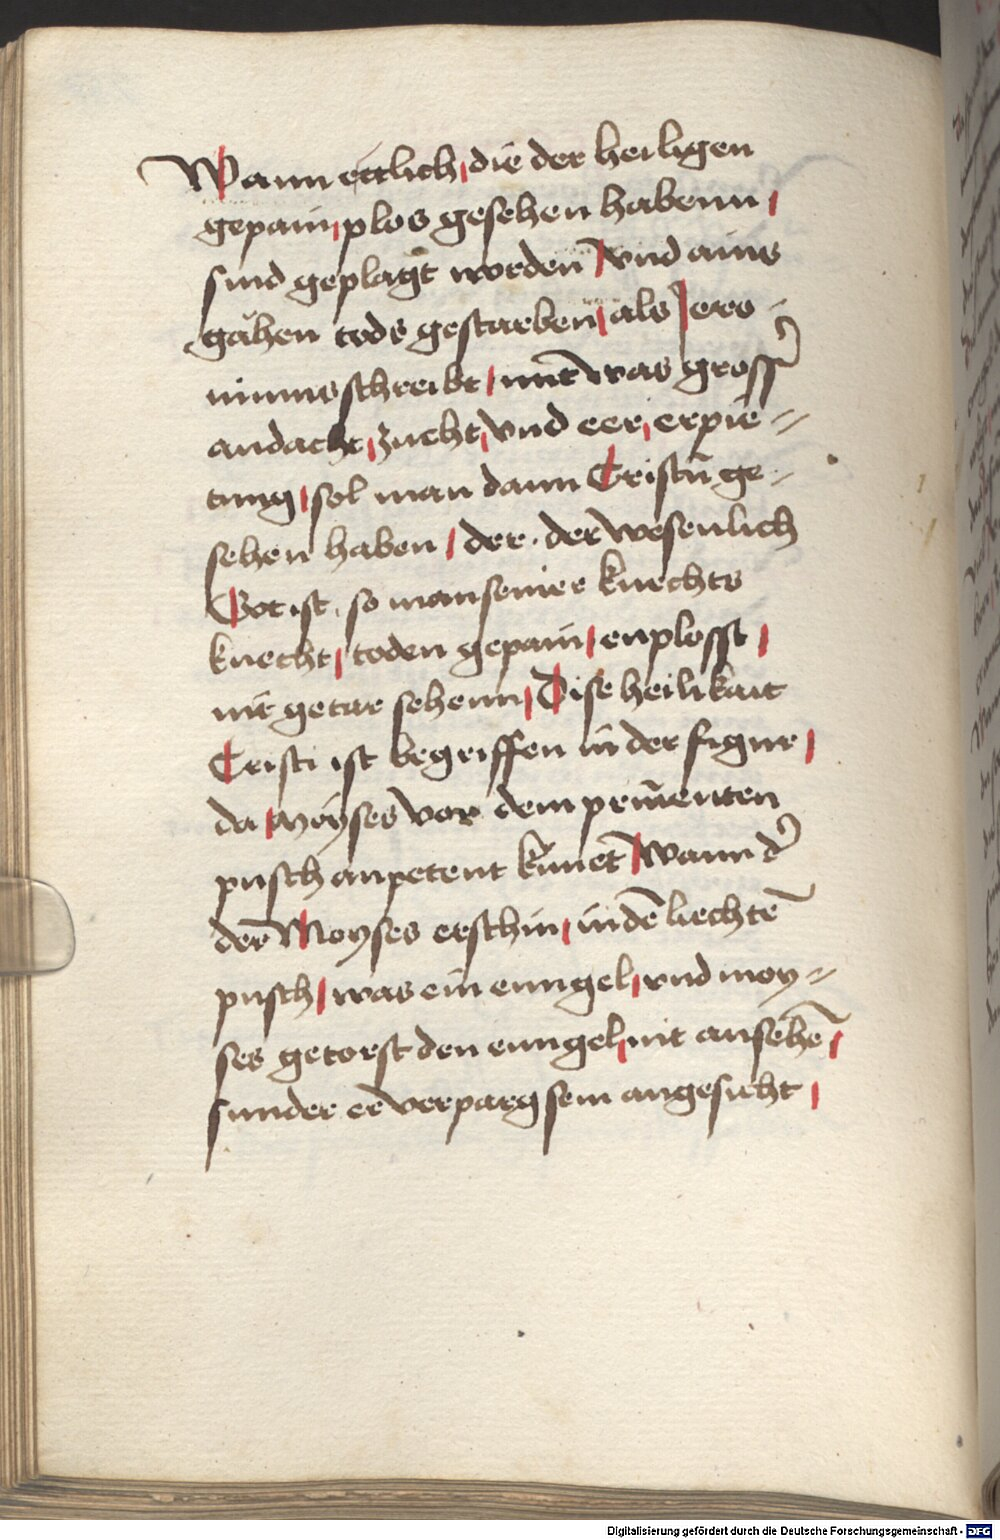 Wann ettlich / die der heiligen
gepain / plos gesehen habenn /
sind geplagt worden / vnd ains
gähen tods gestarben / als Jero-
nimus schreibt / mit was grosser
andacht / zucht / vnd eer / erpie-
tung / sol man dann Cristu̅ ge-
sehen haben / der. der wesenlich
Got ist. so man seiner knechts
knecht / toden gepain / enplosst /
nit getar sehenn / Dise heilikait
Cristi ist begriffen in der figur /
da Moÿses vor dem prin̅enten
pusch anpetent kniet / Wann d'
der Moyses erschin / in de̅ liechte̅
pusch / was ein enngel / vnd moy-
ses getorst den enngel / nit ansehe̅ /
sunder er verparg sein angesicht /
Digitalisierung gefördert durch die Deutsche Forschungsgemeinschaft - DFG